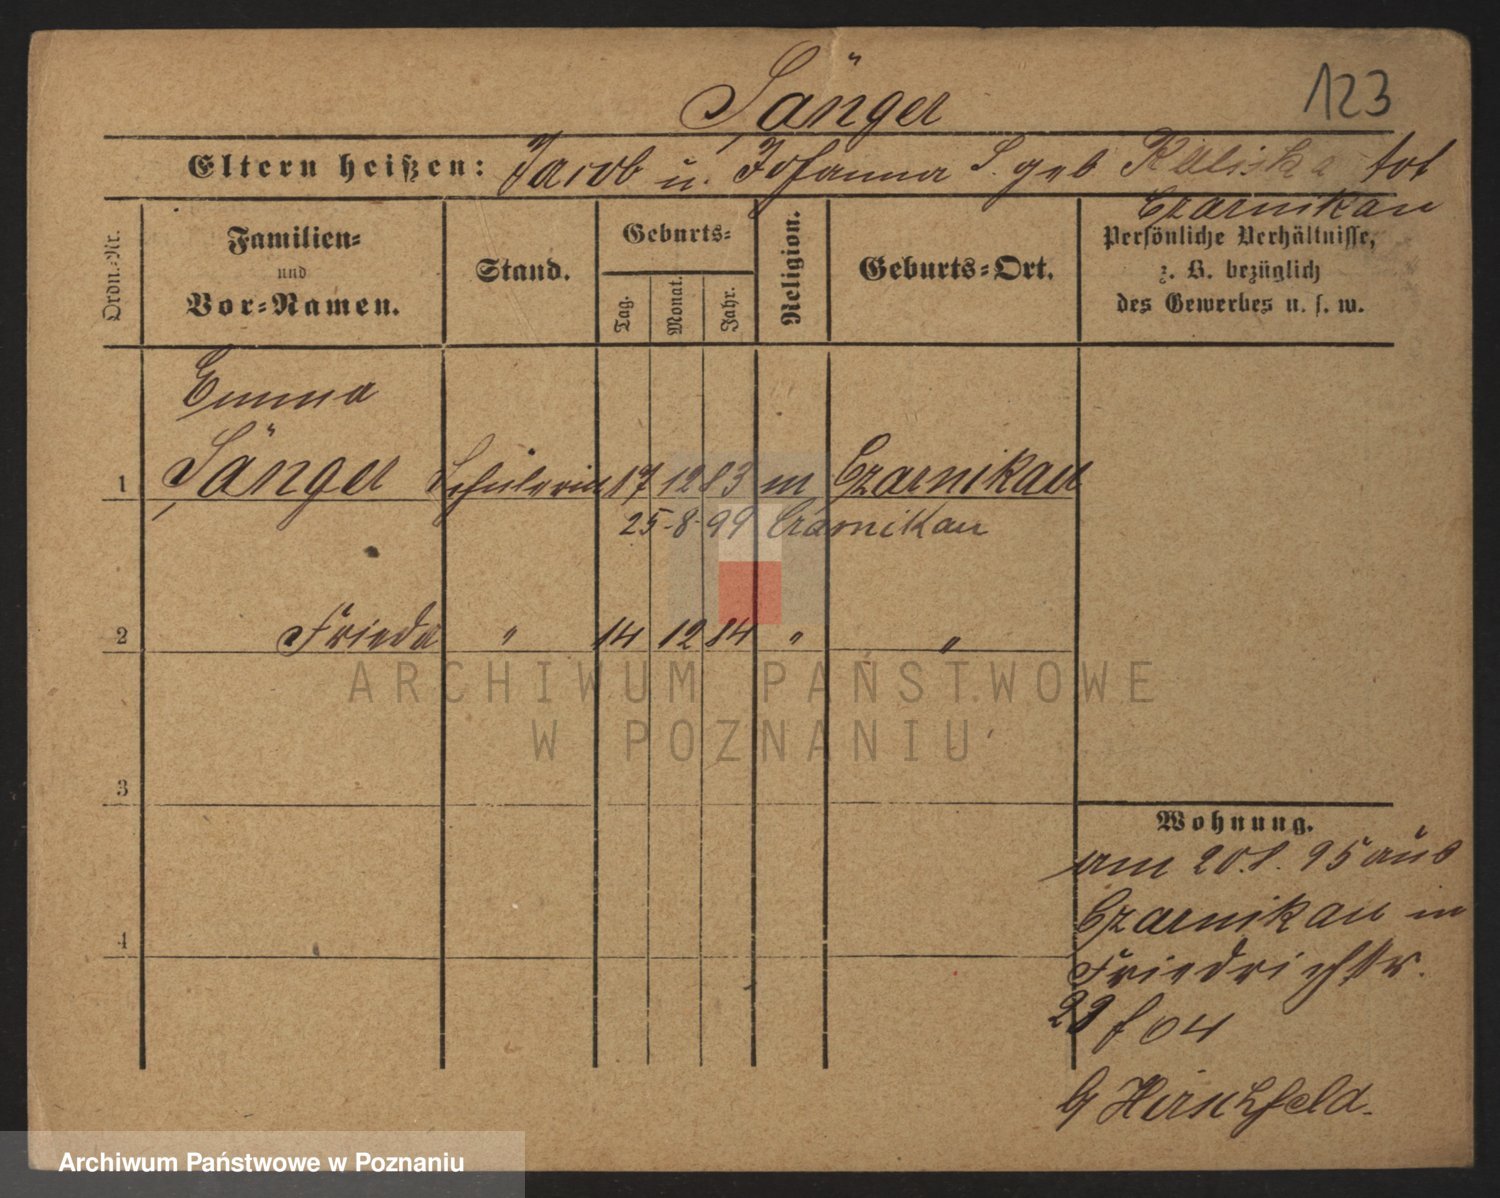 123
Sänger
Eltern heißen: Jacob u. Johanna S. geb Kaliska tot
Czarnikau
Ordn.-Nr.
Familien-
und
Vor-Namen.
Stand.
Geburts-
Tag.
Monat.
Jahr.
Religion.
Geburts-Ort.
Persönliche Verhältnisse,
z. B. bezüglich
des Gewerbes u. s. w.
Emma
1 Sänger Schülerin 17 12 83 m Czarnikau
25-8-99 Czarnikau
2 Frieda " 14 12 84 " "
ARCHIWUM PAŃSTWOWE
W POZNANIU
3
4
Wohnung.
am 20.8.95 aus
Czarnikau in
Friedrichstr.
f 04
Hirschfeld.
Archiwum Państwowe w Poznaniu